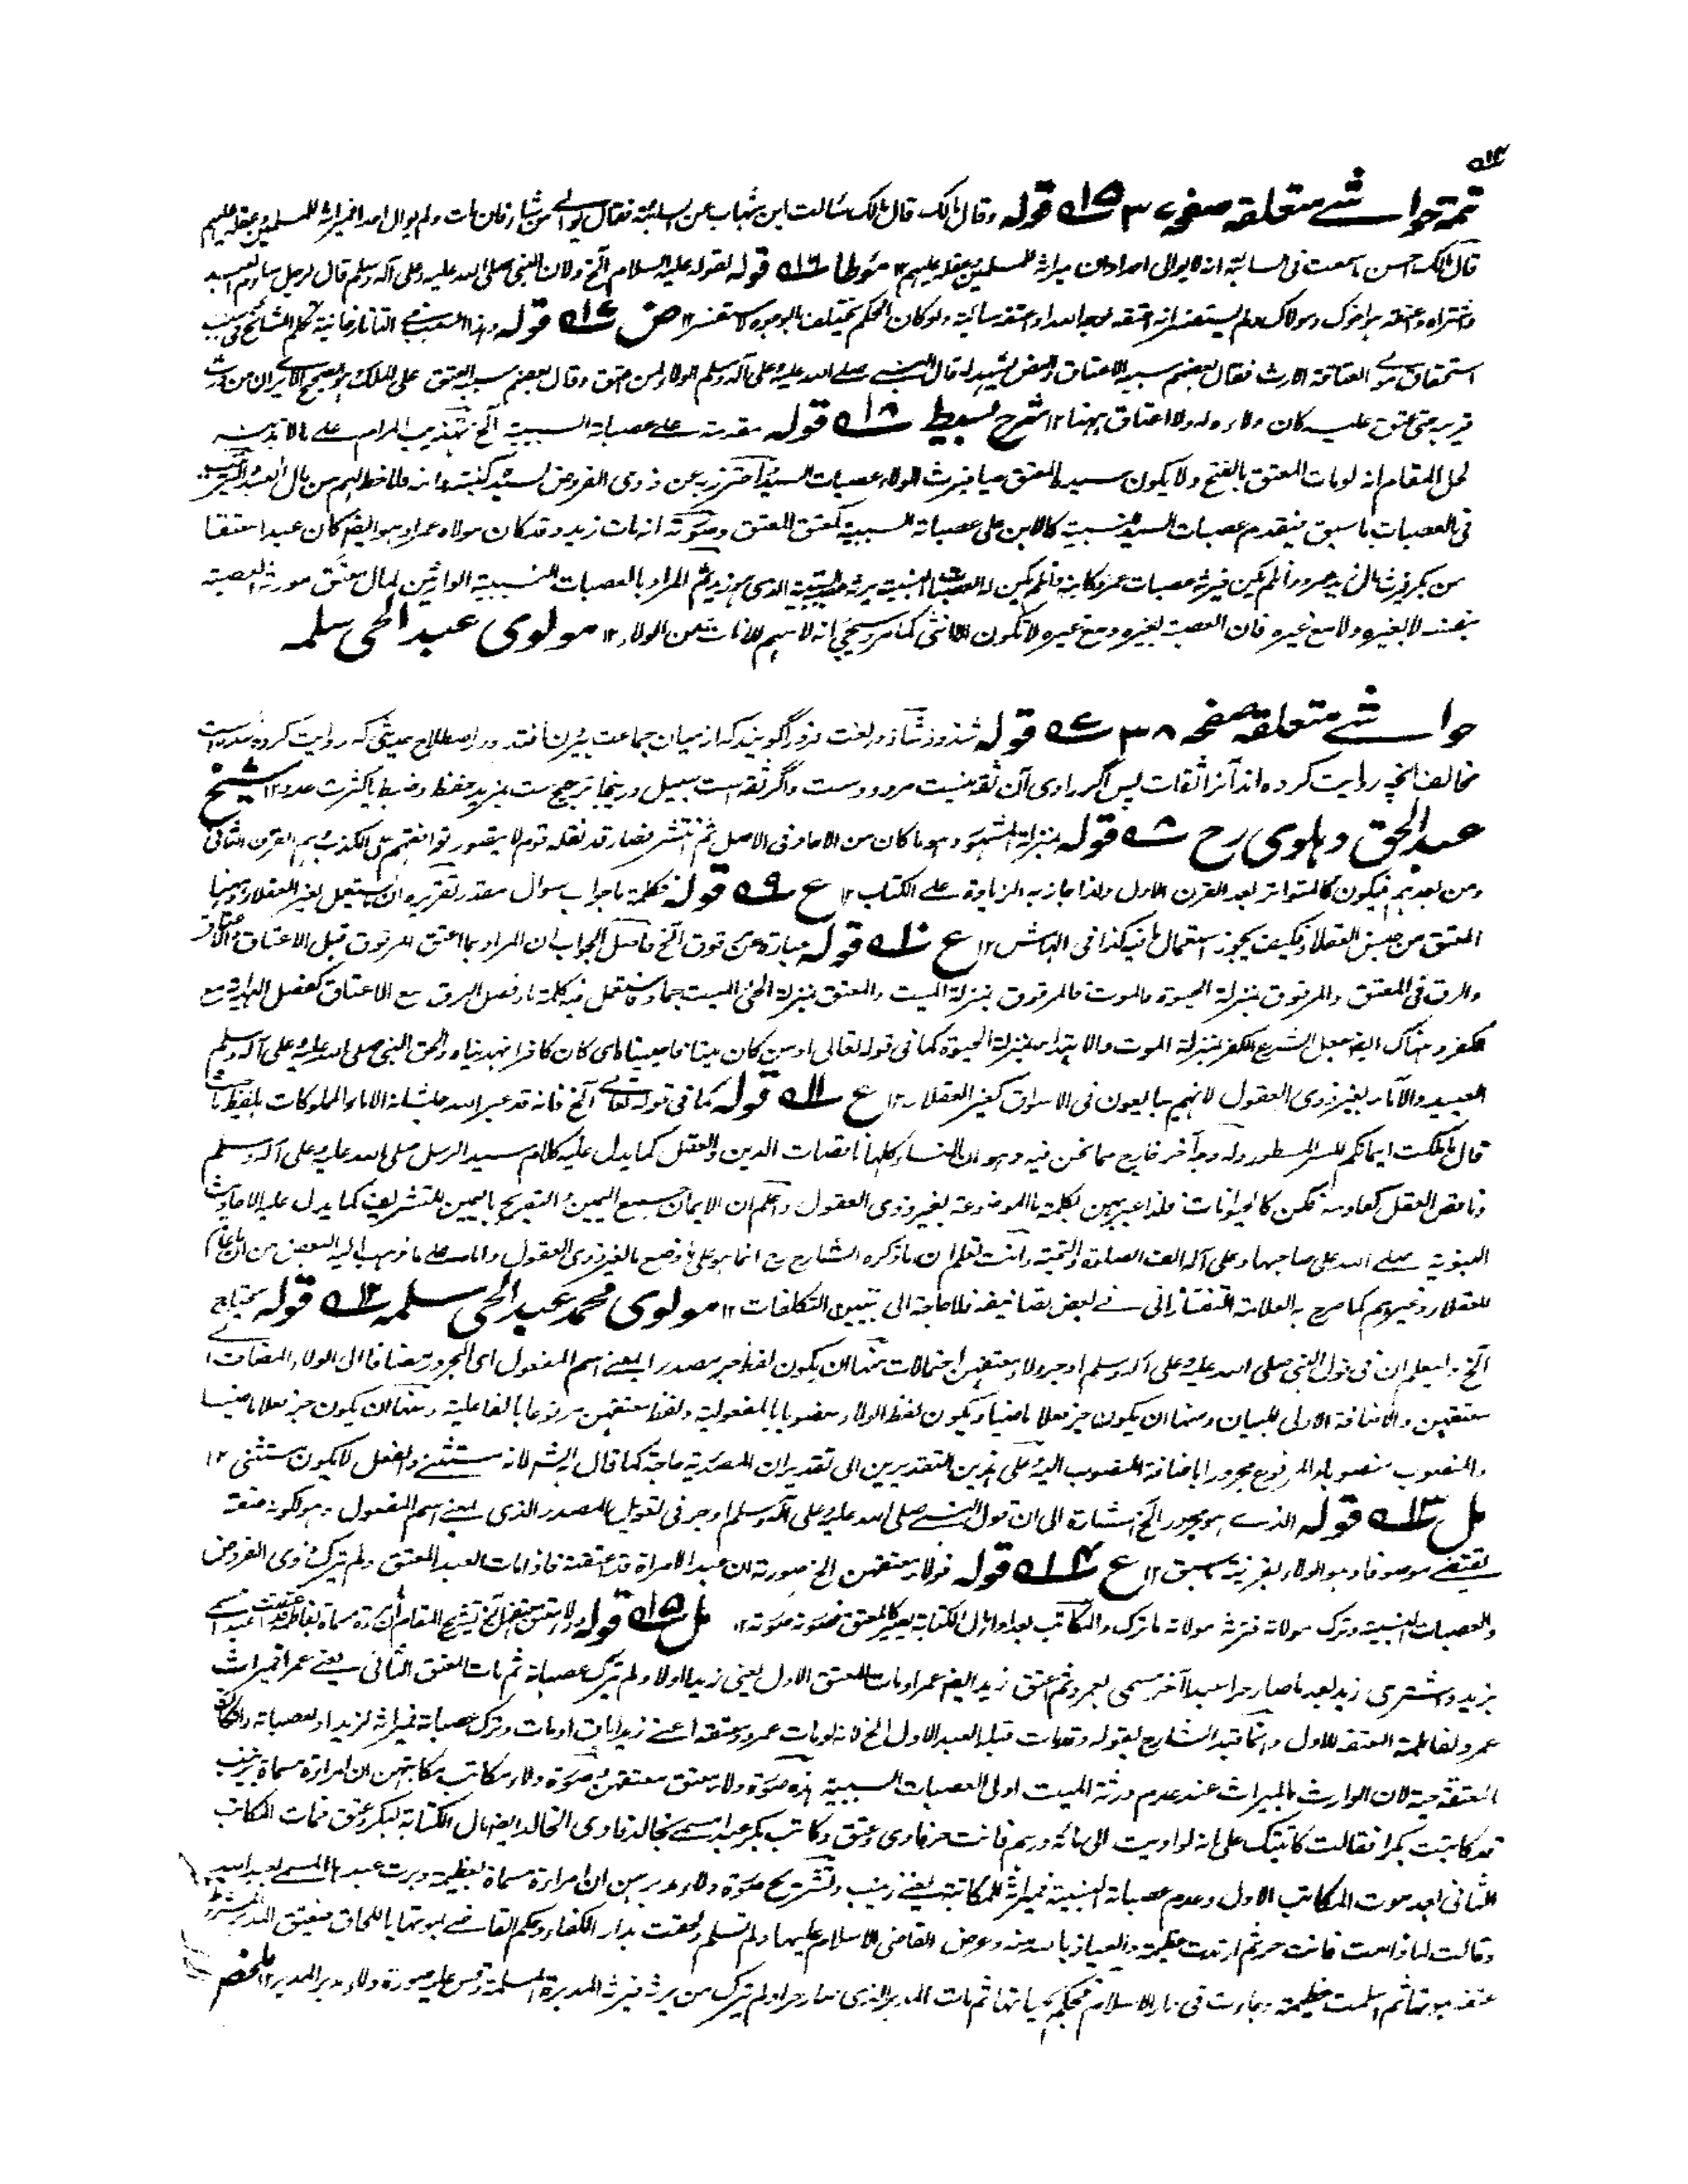 تمة حواشے متعلقہ صفحہ ۳۷ ۱۵ قولہ وقال مالک قال مالک سالت ابن شہاب عن السائبة فقال یوالے من شاء فان مات ولم یوال احدا فمیراثہ للمسلمین وعقلہ علیہم
قال مالک احسن ما سمعت فی السائبة انہ لا یوالی احدا وان میراثہ للمسلمین وعقلہ علیہم ۱۲ موطا ۱۶ قولہ لقولہ علیہ السلام الخ ولان النبی صلی اللہ علیہ وعلی آلہ وسلم قال لرجل ساوم العبد
واشتراہ واعتقہ ہو اخوک ومولاک ولم یستفسر انہ اعتقہ لوجہ اللہ او اعتقہ سائبة ولو کان الحکم یختلف بالوجوہ لاستفسر ۱۲ ض ۱۷ قولہ وہذا السبب فی التاتارخانیة تکلم المشائخ فی سبب
استحقاق مولے العتاقة الارث فقال بعضہم سببہ الاعتاق والنص یشہد لہ قال النبے صلے اللہ علیہ وعلی آلہ وسلم الولاء لمن اعتق وقال بعضہم سببہ العتق علی الملک وہو الصحیح الا یری ان من ورث
قریبہ حتی عتق علیہ کان ولاءہ لہ ولا اعتاق ہہنا ۱۲ شرح بسیط ۱۸ قولہ مقدمة علے عصباتہ السببیة الخ تہذیب المرام علے ما
لحل المقام انہ لو مات المعتق بالفتح ولا یکون سیدہ المعتق حیا فیرث الولاء عصبات السید احترز بہ عن ذوی الفروض لسید
فی العصبات ما سبق فیقدم عصبات السید النسبیة کالابن علی عصباتہ السببیة کمعتق المعتق وصورتہ انہ مات زید وقد کان مولاہ عمرا وہو ایضا کان عبدا معتقا
من بکر فیرث ال زید عمرو وان لم یکن فیرثہ عصبات عمرو کابنہ وان لم یکن لہ العصبات النسبیة یرثہ
بنفسہ لا بغیرہ ولا مع غیرہ فان العصبة بغیرہ ومع غیرہ لا تکون الا انثی کما مر وسیجئ انہ لا سہم للاناث من الولاء ۱۲ مولوی عبد الحی سلمہ
حواشے متعلقہ صفحہ ۳۸ ۷ قولہ شذوذ شاذ در لغت فرد را گویند کہ از میان جماعت بیرون افتد ودر اصطلاح حدیثی کہ روایت کردہ شدہ است
مخالف آنچہ روایت کردہ اند آنرا ثقات پس اگر راوی آن ثقہ نیست مردود ست واگر ثقہ است سبیل در ینجا ترجیح ست بمزید حفظ وضبط یا کثرت عدد ۱۲ شیخ
عبد الحق دہلوی رح ۸ قولہ بمنزلة المشہور وہو ما کان من الآحاد فی الاصل ثم انتشر فصار قد نقلہ قوم لا یتصور تواطئہم علی الکذب وہم القرن الثانی
ومن بعدہم فیکون کالمتواتر بعد القرن الاول ولذا جاز بہ الزیادة علے الکتاب ۱۲ ع ۹ قولہ فکلمة ما جواب سوال مقدر تقریرہ ان ما یستعمل لغیر العقلاء وہہنا
المعتق من جنس العقلاء فکیف یجوز استعمال ما فیہ کذا فی الہامش ۱۲ ع ۱۰ قولہ عبارة عن مرقوق الخ حاصل الجواب ان المراد بما اعتق المرقوق قبل الاعتاق
والرق فی المعتق والمرقوق بمنزلة الحیوة والموت فالمرقوق بمنزلة المیت والمعتق بمنزلة الحی المیت جماد فتستعمل فیہ کلمة ما وفصل الرق مع الاعتاق کفصل الہدایة مع
الکفر وہناک ایضا جعل الشرع الکفر بمنزلة الموت والاہتداء بمنزلة الحیوة کما فی قولہ تعالی او من کان میتا فاحییناہ ای کان کافرا فہدیناہ والحق النبی صلی اللہ علیہ وعلی آلہ وسلم
العبید والآماء بغیر ذوی العقول لانہم یباعون فی الاسواق کغیر العقلاء ۱۲ ع ۱۱ قولہ کما فی قولہ تعالے الخ فانہ قد عبر اللہ جل شانہ الاماء المملوکات بلفظ ما
قال ما ملکت ایمانکم للسر المسطور ولہ وجہ آخر خارج مما نحن فیہ وہو ان النساء کلہا ناقصات الدین والعقل کما یدل علیہ کلام سید الرسل صلی اللہ علیہ وعلی آلہ وسلم
وناقص العقل کعادمہ فکن کالحیوانات فلذا عبرہن بکلمة ما الموضوعة لغیر ذوی العقول واعلم ان الایمان جمع الیمین والتصریح بالیمین للتشریف کما یدل علیہ الاحادیث
النبویة صلے اللہ علی صاحبہا وعلی آلہ الف الصلوة والتحیة وانت تعلم ان ما ذکرہ الشارح رح انما ہو علی وضع ما لغیر ذوی العقول واما علے ما ذہب الیہ البعض من ان ما عام
للعقلاء وغیرہم کما صرح بہ العلامة التفتازانی فے بعض تصانیفہ فلا حاجة الی تبیین التکلفات ۱۲ مولوی محمد عبد الحی سلمہ ۱۲ قولہ یحتاج
الخ اعلم ان فی قول النبی صلی اللہ علیہ وعلی آلہ وسلم او جر ولاء معتقہن احتمالات منہا ان یکون لفظ جر مصدرا بمعنے اسم المفعول ای المجرور مضافا الی الولاء المضاف الے
معتقہن والاضافة الاولی للبیان ومنہا ان یکون جر فعلا ماضیا ویکون لفظ الولاء منصوبا بالمفعولیة ولفظ معتقہن مرفوعا بالفاعلیة ومنہا ان یکون جر فعلا ماضیا
والمنصوب منصوبا والمرفوع مجرورا باضافة المنصوب الیہ علی ہذین التقدیرین الی تقدیر ان المصدریة حاجة کما قال الش لانہ مستثنے والفعل لا یکون مستثنی ۱۲
مل ۱۳ قولہ الذے ہو مجرور الخ اشارة الی ان قول النبے صلی اللہ علیہ وعلی آلہ وسلم او جر فی تاویل المصدر الذی بمعنے اسم المفعول وہو لکونہ صفة
یقتضے موصوفا وہو الولاء بقرینة ما سبق ۱۲ ع ۱۴ قولہ فولاء معتقہن الخ صورتہ ان عبدا لامراة قد اعتقتہ فاذا مات العبد المعتق ولم یترک ذوی الفروض
والعصبات النسبیة وترک مولاتہ فترثہ مولاتہ ما ترک والمکاتب بعد اداء مال الکتابة یصیر کالمعتق فصورتہ صورتہ ۱۲ مل ۱۵ قولہ ولاء معتق معتقہن الخ تشریح المقام ان امرأة مسماة بفاطمة قد اعتقت عبدا مسمے
بزید واشتری زید بعد ما صار حرا عبدا آخر مسمی بعمرو ثم اعتق زید ایضا عمرا ومات المعتق الاول یعنی زیدا اولا ولم یترک عصباتہ ثم مات المعتق الثانی یعنے عمرا فمیراث
عمرو لفاطمة المعتقة للاول وانما قید الشارح بقولہ وقد مات قبلہ العبد الاول الخ لانہ لو مات عمرو ومعتقہ اعنے زیدا باق او مات وترک عصباتہ فمیراثہ لزید او لعصباتہ وان کانت
المعتقة حیة لان الوارث بالمیراث عند عدم ورثة المیت اولی العصبات السببیة ہذہ صورة ولاء معتق معتقہن وصورة ولاء مکاتب مکاتبہن ان امراة مسماة بزینب
قد کاتبت بکرا فقالت کاتبتک علی انہ لو ادیت الی مائة درہم فانت حر فادی وعتق وکاتب بکر عبدا مسمے بخالد فادی الخالد ایضا مال الکتابة لبکر وعتق فمات المکاتب
الثانی بعد موت المکاتب الاول وعدم عصباتہ النسبیة فمیراثہ للمکاتبة یعنے زینب وتشریح صورة ولاء مدبرہن ان امراة مسماة بعظیمة دبرت عبدہا المسمے بعبد اللہ
وقالت لہ اذا مت فانت حر ثم ارتدت عظیمة والعیاذ باللہ منہ وعرض القاضی الاسلام علیہا ولم تسلم ولحقت بدار الکفار وحکم القاضے بموتہا باللحاق فعتق المدبر
عند موتہا ثم اسلمت عظیمة وجاءت فی دار الاسلام فحکم بحیاتہا ثم مات المدبر الذی صار حرا ولم یترک من یرثہ فیرثہ المدبرة المسلمة وقس علیہ صورة ولاء مدبر المدبر ۱۲ ملخص